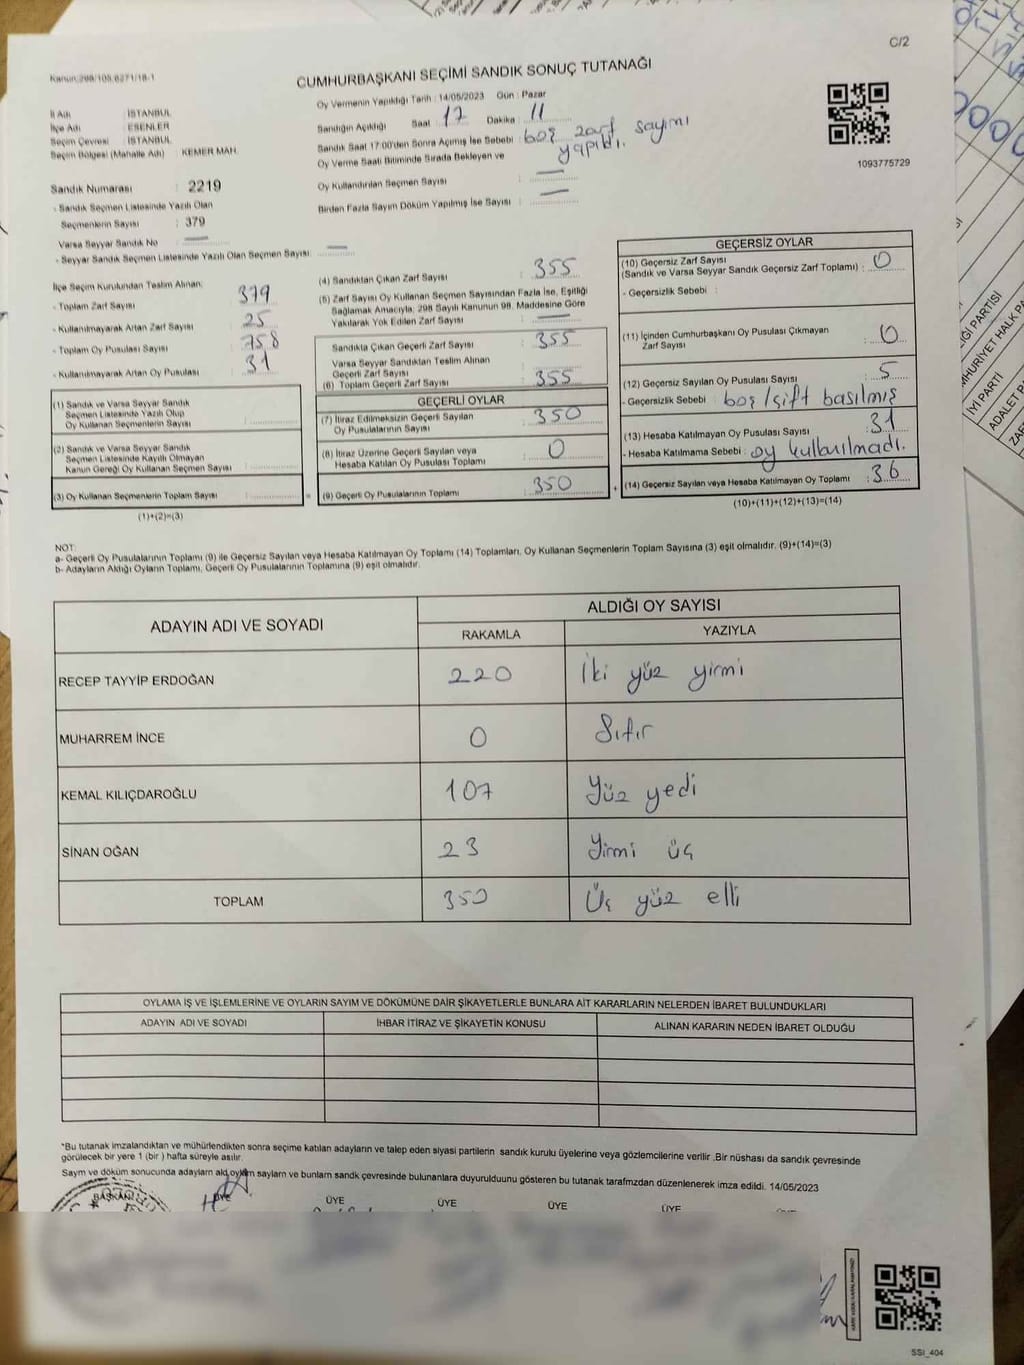 C/2
Kanun:298/108,6271/18-1
CUMHURBAŞKANI SEÇİMİ SANDIK SONUÇ TUTANAĞI
İl Adı : İSTANBUL
İlçe Adı : ESENLER
Seçim Çevresi : İSTANBUL
Seçim Bölgesi (Mahalle Adı) : KEMER MAH.
Oy Vermenin Yapıldığı Tarih : 14/05/2023 Gün : Pazar
Sandığın Açıldığı Saat : 17 Dakika : 11
Sandık Saat 17:00'den Sonra Açılmış İse Sebebi : boş zarf sayımı yapıldı.
Oy Verme Saati Bitiminde Sırada Bekleyen ve
Oy Kullandırılan Seçmen Sayısı : —
Birden Fazla Sayım Döküm Yapılmış İse Sayısı : —
1093775729
Sandık Numarası : 2219
- Sandık Seçmen Listesinde Yazılı Olan
Seçmenlerin Sayısı : 379
Varsa Seyyar Sandık No : —
- Seyyar Sandık Seçmen Listesinde Yazılı Olan Seçmen Sayısı: —
İlçe Seçim Kurulundan Teslim Alınan:
- Toplam Zarf Sayısı : 379
- Kullanılmayarak Artan Zarf Sayısı : 25
- Toplam Oy Pusulası Sayısı : 758
- Kullanılmayarak Artan Oy Pusulası : 31
(1) Sandık ve Varsa Seyyar Sandık
Seçmen Listesinde Yazılı Olup
Oy Kullanan Seçmenlerin Sayısı :
(2) Sandık ve Varsa Seyyar Sandık
Seçmen Listesinde Kayıtlı Olmayan
Kanun Gereği Oy Kullanan Seçmen Sayısı :
(3) Oy Kullanan Seçmenlerin Toplam Sayısı :
(1)+(2)=(3)
(4) Sandıktan Çıkan Zarf Sayısı : 355
(5) Zarf Sayısı Oy Kullanan Seçmen Sayısından Fazla İse, Eşitliği
Sağlamak Amacıyla, 298 Sayılı Kanunun 98. Maddesine Göre
Yakılarak Yok Edilen Zarf Sayısı : —
Sandıkta Çıkan Geçerli Zarf Sayısı : 355
Varsa Seyyar Sandıktan Teslim Alınan
Geçerli Zarf Sayısı :
(6) Toplam Geçerli Zarf Sayısı : 355
GEÇERLİ OYLAR
(7) İtiraz Edilmeksizin Geçerli Sayılan
Oy Pusulalarının Sayısı : 350
(8) İtiraz Üzerine Geçerli Sayılan veya
Hesaba Katılan Oy Pusulası Toplamı : 0
= (9) Geçerli Oy Pusulalarının Toplamı : 350 +
GEÇERSİZ OYLAR
(10) Geçersiz Zarf Sayısı
(Sandık ve Varsa Seyyar Sandık Geçersiz Zarf Toplamı) : 0
- Geçersizlik Sebebi :
(11) İçinden Cumhurbaşkanı Oy Pusulası Çıkmayan
Zarf Sayısı : 0
(12) Geçersiz Sayılan Oy Pusulası Sayısı : 5
- Geçersizlik Sebebi : boş/çift basılmış
(13) Hesaba Katılmayan Oy Pusulası Sayısı : 31
- Hesaba Katılmama Sebebi : oy kullanılmadı.
(14) Geçersiz Sayılan veya Hesaba Katılmayan Oy Toplamı : 36
(10)+(11)+(12)+(13)=(14)
NOT:
a- Geçerli Oy Pusulalarının Toplamı (9) ile Geçersiz Sayılan veya Hesaba Katılmayan Oy Toplamı (14) Toplamları, Oy Kullanan Seçmenlerin Toplam Sayısına (3) eşit olmalıdır. (9)+(14)=(3)
b- Adayların Aldığı Oyların Toplamı, Geçerli Oy Pusulalarının Toplamına (9) eşit olmalıdır.
ADAYIN ADI VE SOYADI ALDIĞI OY SAYISI
RAKAMLA YAZIYLA
RECEP TAYYİP ERDOĞAN 220 İki yüz yirmi
MUHARREM İNCE 0 Sıfır
KEMAL KILIÇDAROĞLU 107 Yüz yedi
SİNAN OĞAN 23 Yirmi üç
TOPLAM 350 Üç yüz elli
OYLAMA İŞ VE İŞLEMLERİNE VE OYLARIN SAYIM VE DÖKÜMÜNE DAİR ŞİKAYETLERLE BUNLARA AİT KARARLARIN NELERDEN İBARET BULUNDUKLARI
ADAYIN ADI VE SOYADI İHBAR İTİRAZ VE ŞİKAYETİN KONUSU ALINAN KARARIN NEDEN İBARET OLDUĞU
*Bu tutanak imzalandıktan ve mühürlendikten sonra seçime katılan adayların ve talep eden siyasi partilerin sandık kurulu üyelerine veya gözlemcilerine verilir .Bir nüshası da sandık çevresinde
görülecek bir yere 1 (bir ) hafta süreyle asılır.
Sayım ve döküm sonucunda adayların aldığı oyların sayıları ve bunların sandık çevresinde bulunanlara duyurulduunu gösteren bu tutanak tarafımzdan düzenlenerek imza edildi. 14/05/2023
BAŞKAN ÜYE ÜYE ÜYE ÜYE ÜYE
SSI_404
İYİ PARTİ